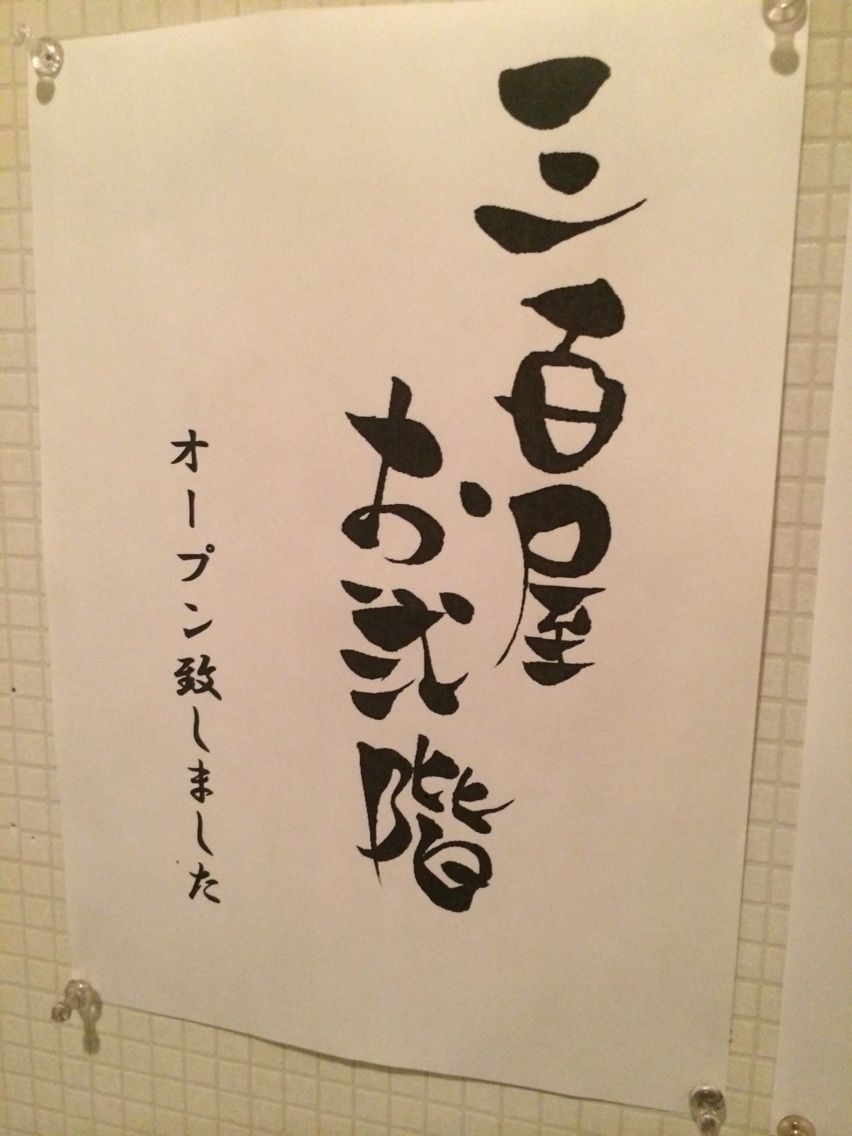 三百屋
お弐階
オープン致しました